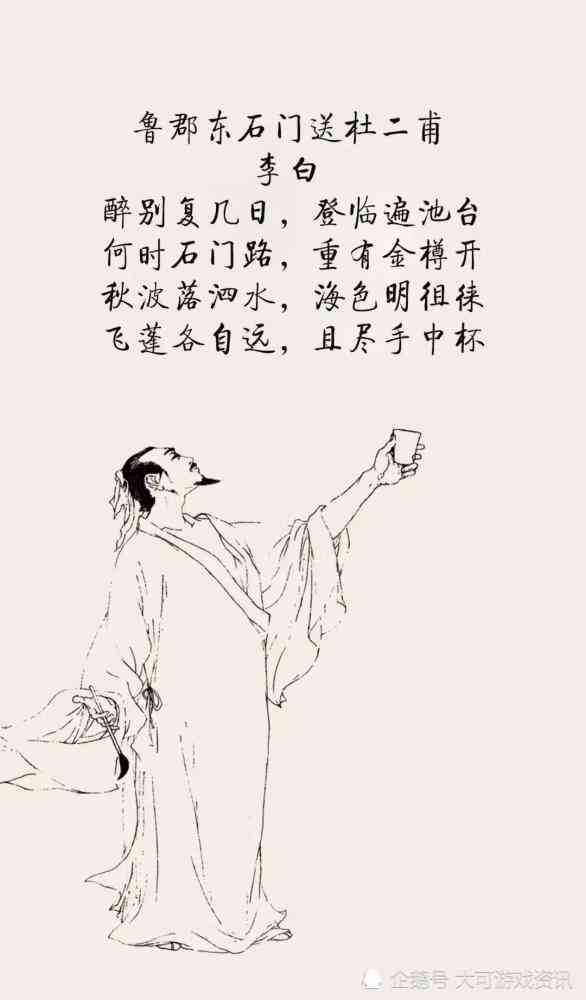 鲁郡东石门送杜二甫
李白
醉别复几日，登临遍池台
何时石门路，重有金樽开
秋波落泗水，海色明徂徕
飞蓬各自远，且尽手中杯
企鹅号 大可游戏资讯